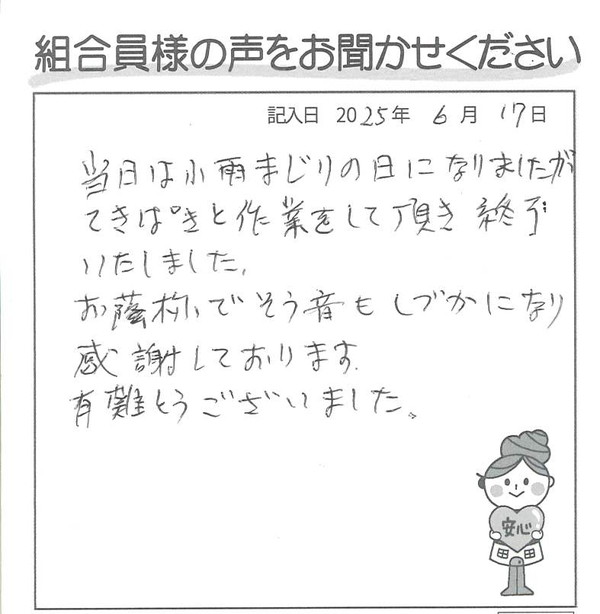 組合員様の声をお聞かせください
記入日 2025年 6月 17日
当日は小雨まじりの日になりましたが
てきぱきと作業をして頂き 終了
いたしました。
お蔭松でそう音もしづかになり
感謝しております。
有難とうございました。
安心